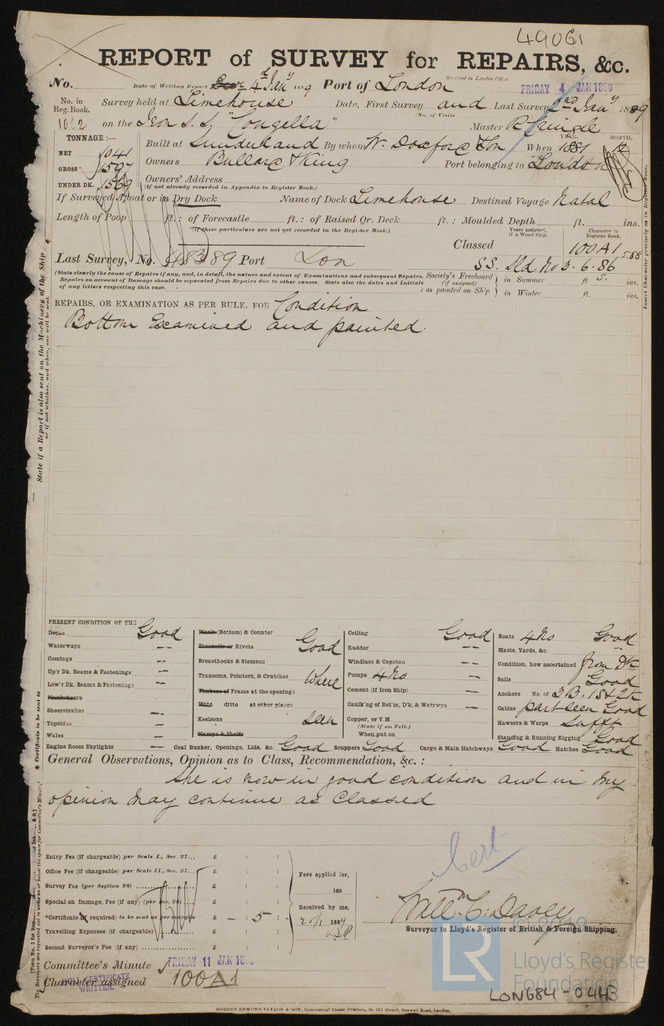 49061
REPORT of SURVEY for REPAIRS, &c.
No. Date of Writing Report 4th Jany 1889 Port of London Received in London Office FRIDAY 4 JAN 1889
No. in Reg. Book. Survey held at Limehouse Date, First Survey and Last Survey 2nd Jany 1889
(No. of Visits
1022 on the Iron S.S. "Congella" Master R Pringle
TONNAGE:— Built at Sunderland By whom W. Doxford & Son When 1881
YEAR. MONTH.
NET 1041
GROSS 1597 Owners Bullard & King Port belonging to London
UNDER DK. 1569 Owners' Address
(If not already recorded in Appendix to Register Book.)
If Surveyed Afloat or in Dry Dock Name of Dock Limehouse Destined Voyage Natal
Length of Poop ft.: of Forecastle ft.: of Raised Qr. Deck ft.: Moulded Depth ft. ins.
(If these particulars are not yet recorded in the Register Book.)
Years assigned, if a Wood Ship. Character in Register Book.
Classed 100A1 5.88
Last Survey, No. 48389 Port Lon S.S. Sld. No 3. 6. 86
(State clearly the cause of Repairs if any, and, in detail, the nature and extent of Examinations and subsequent Repairs. Repairs on account of Damage should be separated from Repairs due to other causes. State also the dates and Initials of any letters respecting this case.
Society's Freeboard (if assigned) as painted on Ship in Summer ft. ins.
in Winter ft. ins.
REPAIRS, OR EXAMINATION AS PER RULE, FOR Condition
Bottom Examined and painted.
State if a Report is also sent on the Machinery of the Ship
PRESENT CONDITION OF THE
Decks Good
Waterways --
Comings --
Up'r Dk. Beams & Fastenings --
Low'r Dk. Beams & Fastenings --
Planksheers
Sheerstrakes --
Topsides --
Wales --
Engine Room Skylights --
Plank (Bottom) & Counter Good
Treenails or Rivets
Breasthooks & Stemson
Transoms, Pointers, & Crutches Where
Timbers of Frame at the openings
Ditto ditto at other places
Keelsons seen
Clamps & Shelfs
Coal Bunker, Openings, Lids, &c. Good
Ceiling Good
Rudder --
Windlass & Capstan --
Pumps 4 No --
Cement (if Iron Ship) --
Caulk'ng of Bot'm, D'k, & Watrwys --
Copper, or Y.M.
(State if on Felt.)
When put on
Scuppers Good Cargo & Main Hatchways Good
Boats 4 No Good
Masts, Yards, &c.
Condition, how ascertained from Dk
Sails Good
Anchors No. of 3B. 1S & 2K
Cables part seen Good
Hawsers & Warps Sufft
Standing & Running Rigging Good
Hatches Good
General Observations, Opinion as to Class, Recommendation, &c.:
She is now in good condition and in my
opinion may continue as Classed
Cert
Entry Fee (if chargeable) per Scale I., Sec. 27... £ : :
Office Fee (if chargeable) per Scale II., Sec. 27... £ : :
Survey Fee (per Section 28) £ : :
Special on Damage, Fee (if any) (per Sec. 28) £ : :
*Certificate (if required) to be sent as per margin £ - 5 -
Travelling Expenses (if chargeable) £ : :
Second Surveyor's Fee (if any) £ : :
Fees applied for,
188
Received by me,
1889
Willm C. Davey
Surveyor to Lloyd's Register of British & Foreign Shipping.
Committee's Minute FRIDAY 11 JAN 1889
Character assigned 100A1
CERTIFICATE WRITTEN.
2020
LR
Lloyd's Register
Foundation
LON684-0443
ROBERT EDMUND TAYLOR & SON, Commercial Steam Printers, 19, Old Street, Goswell Road, London.